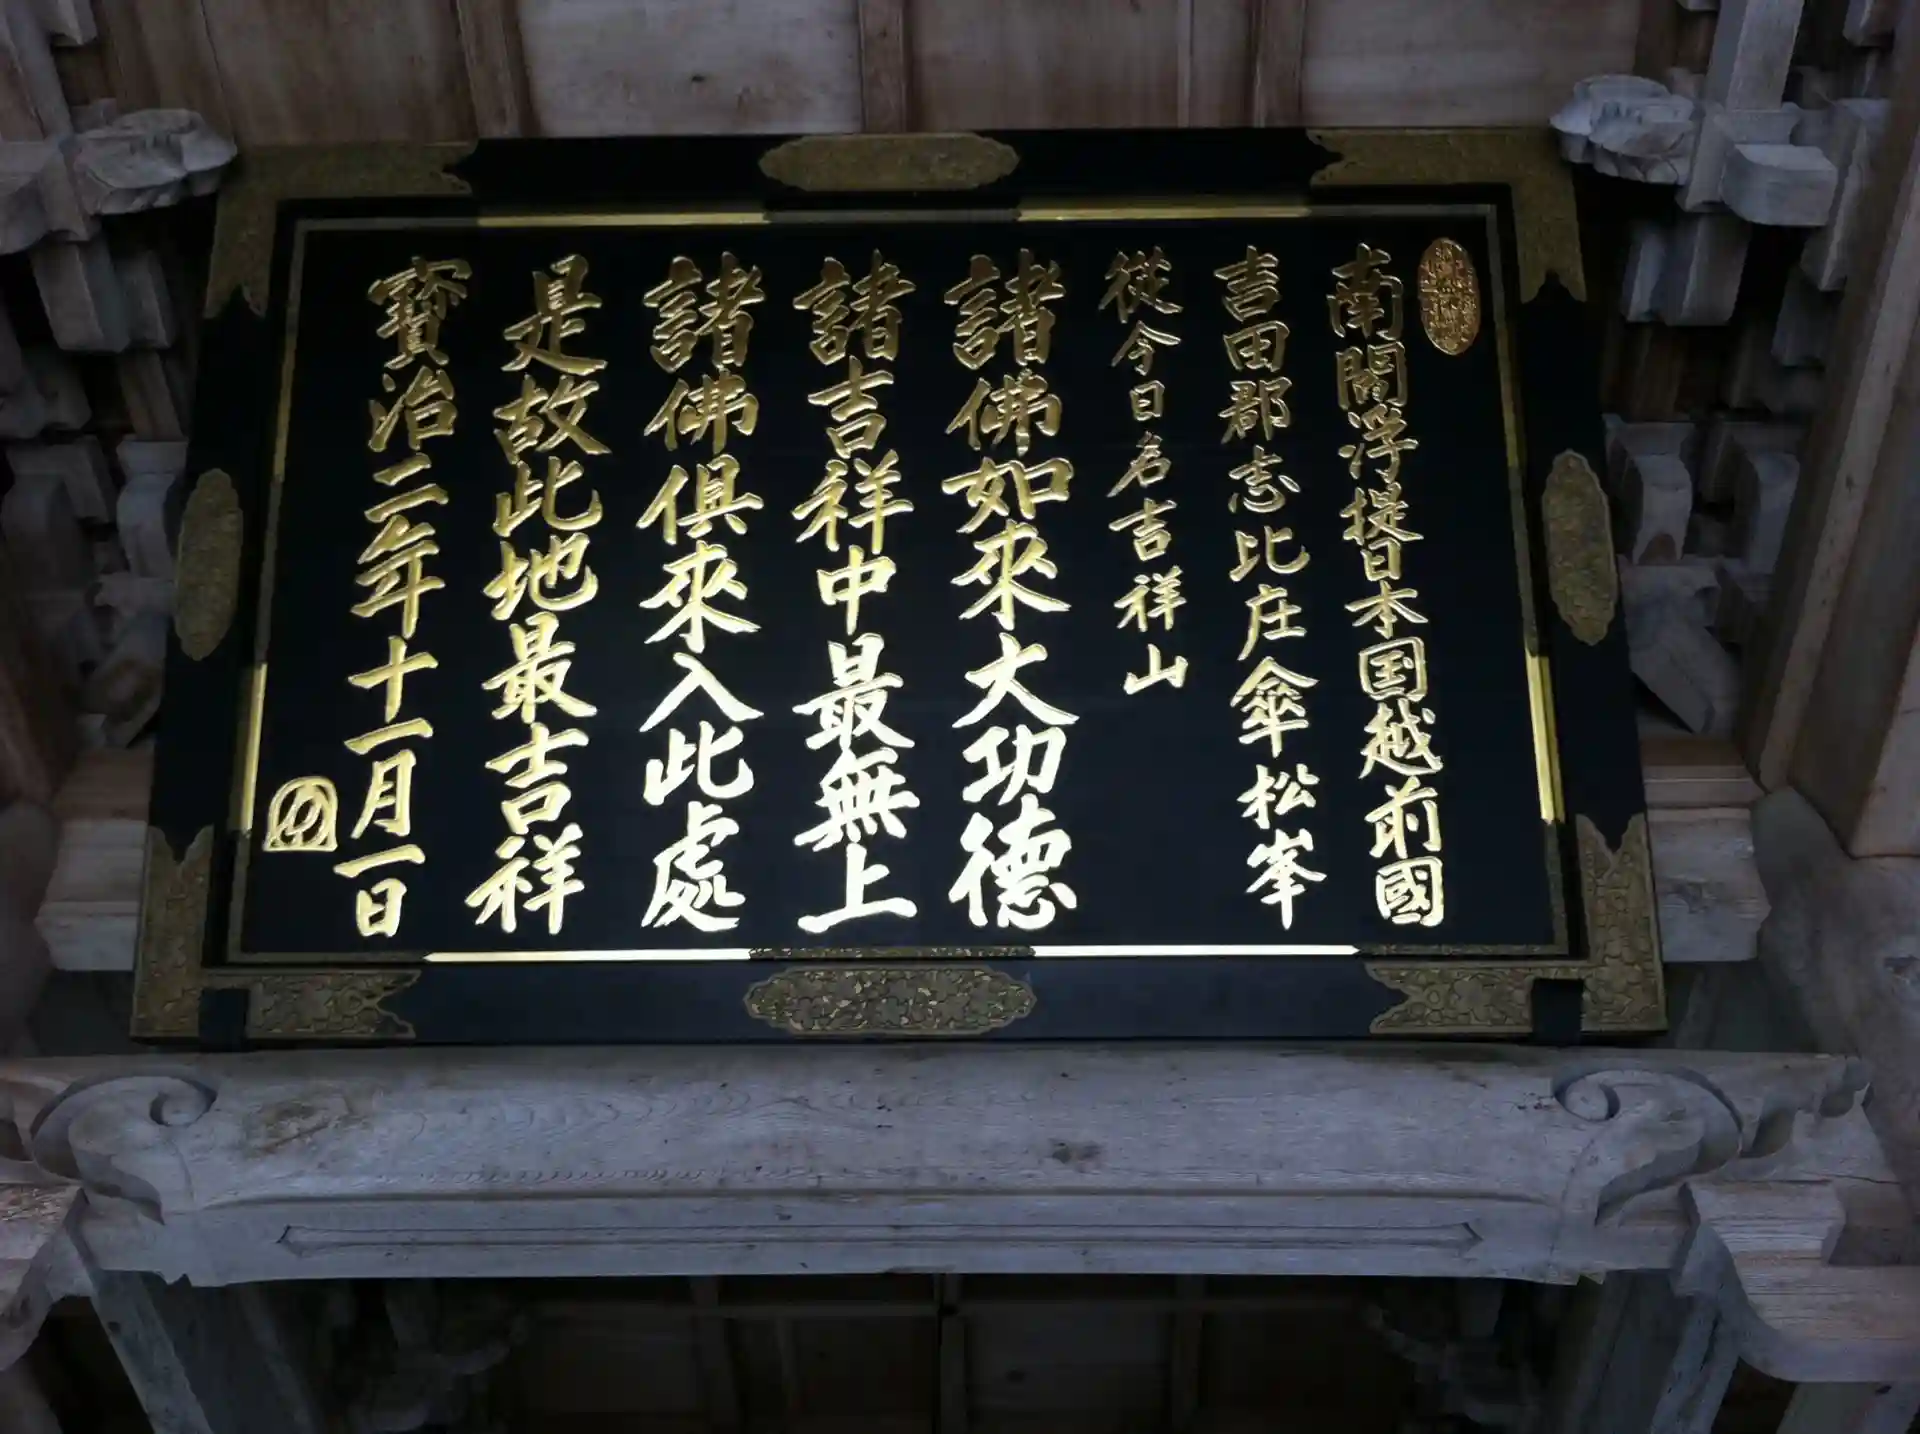 南閻浮提日本国越前國
吉田郡志比庄傘松峯
從今日名吉祥山
諸佛如來大功德
諸吉祥中最無上
諸佛俱來入此處
是故此地最吉祥
寳治二年十一月一日